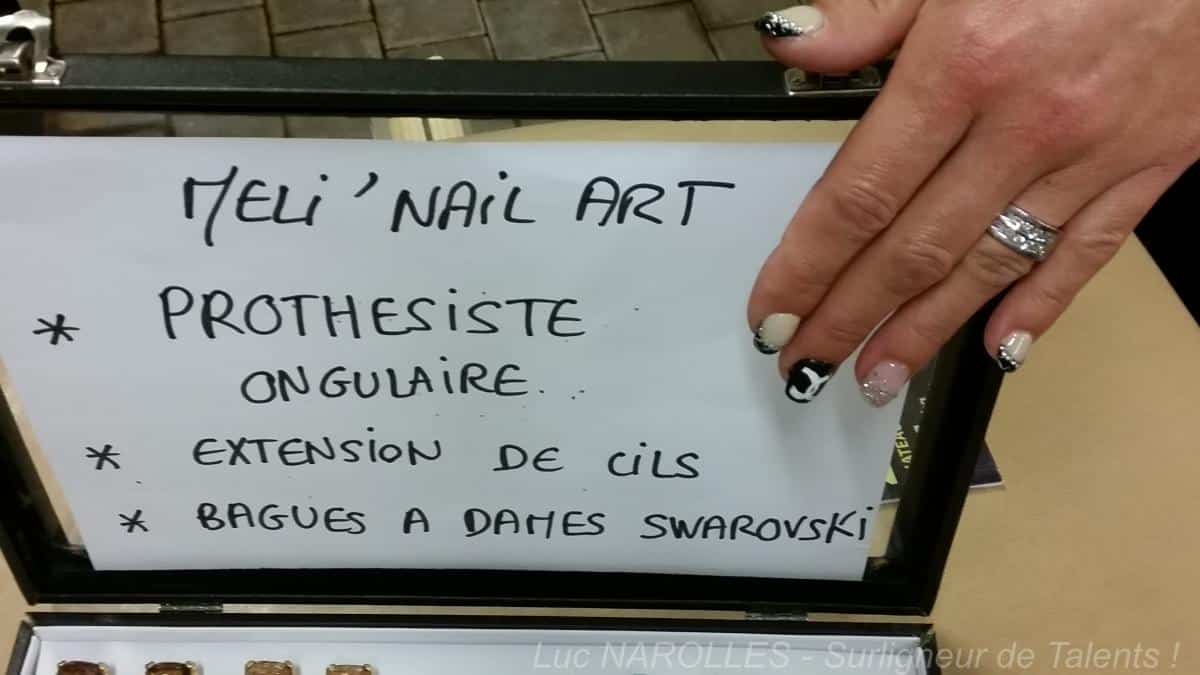 MELi'NAiL ART
* PROTHESiSTE
ONGULAiRE..
* EXTENSiON DE CiLS
* BAGUES A DAMES SWAROVSKi
Luc NAROLLES - Surligneur de Talents !